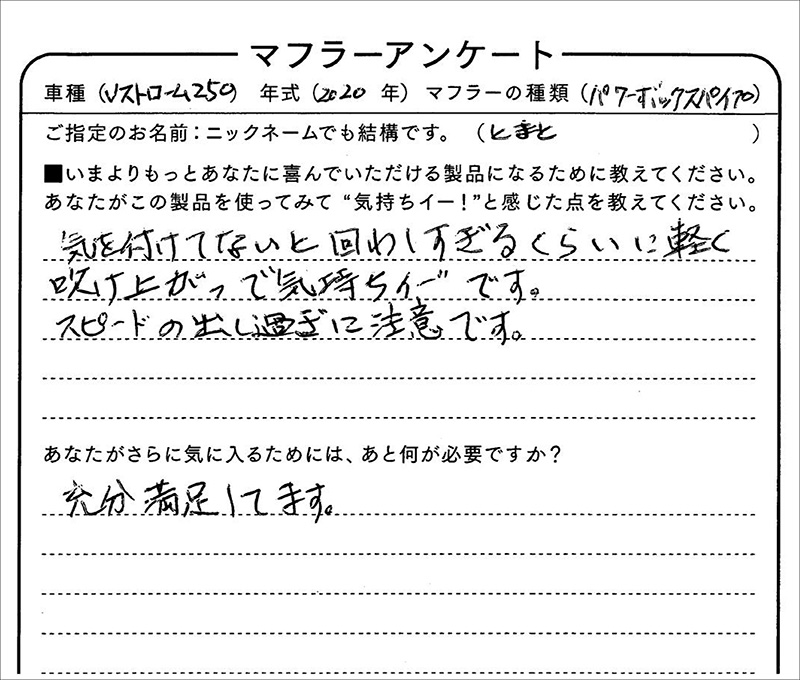 マフラーアンケート
車種（Vストローム250） 年式（2020 年） マフラーの種類（パワーボックスパイプ）
ご指定のお名前：ニックネームでも結構です。（とまと）
■いまよりもっとあなたに喜んでいただける製品になるために教えてください。
あなたがこの製品を使ってみて“気持ちイー！”と感じた点を教えてください。
気を付けてないと回わしすぎるくらいに軽く
吹け上がって気持ちイーです。
スピードの出し過ぎに注意です。
あなたがさらに気に入るためには、あと何が必要ですか？
充分満足してます。